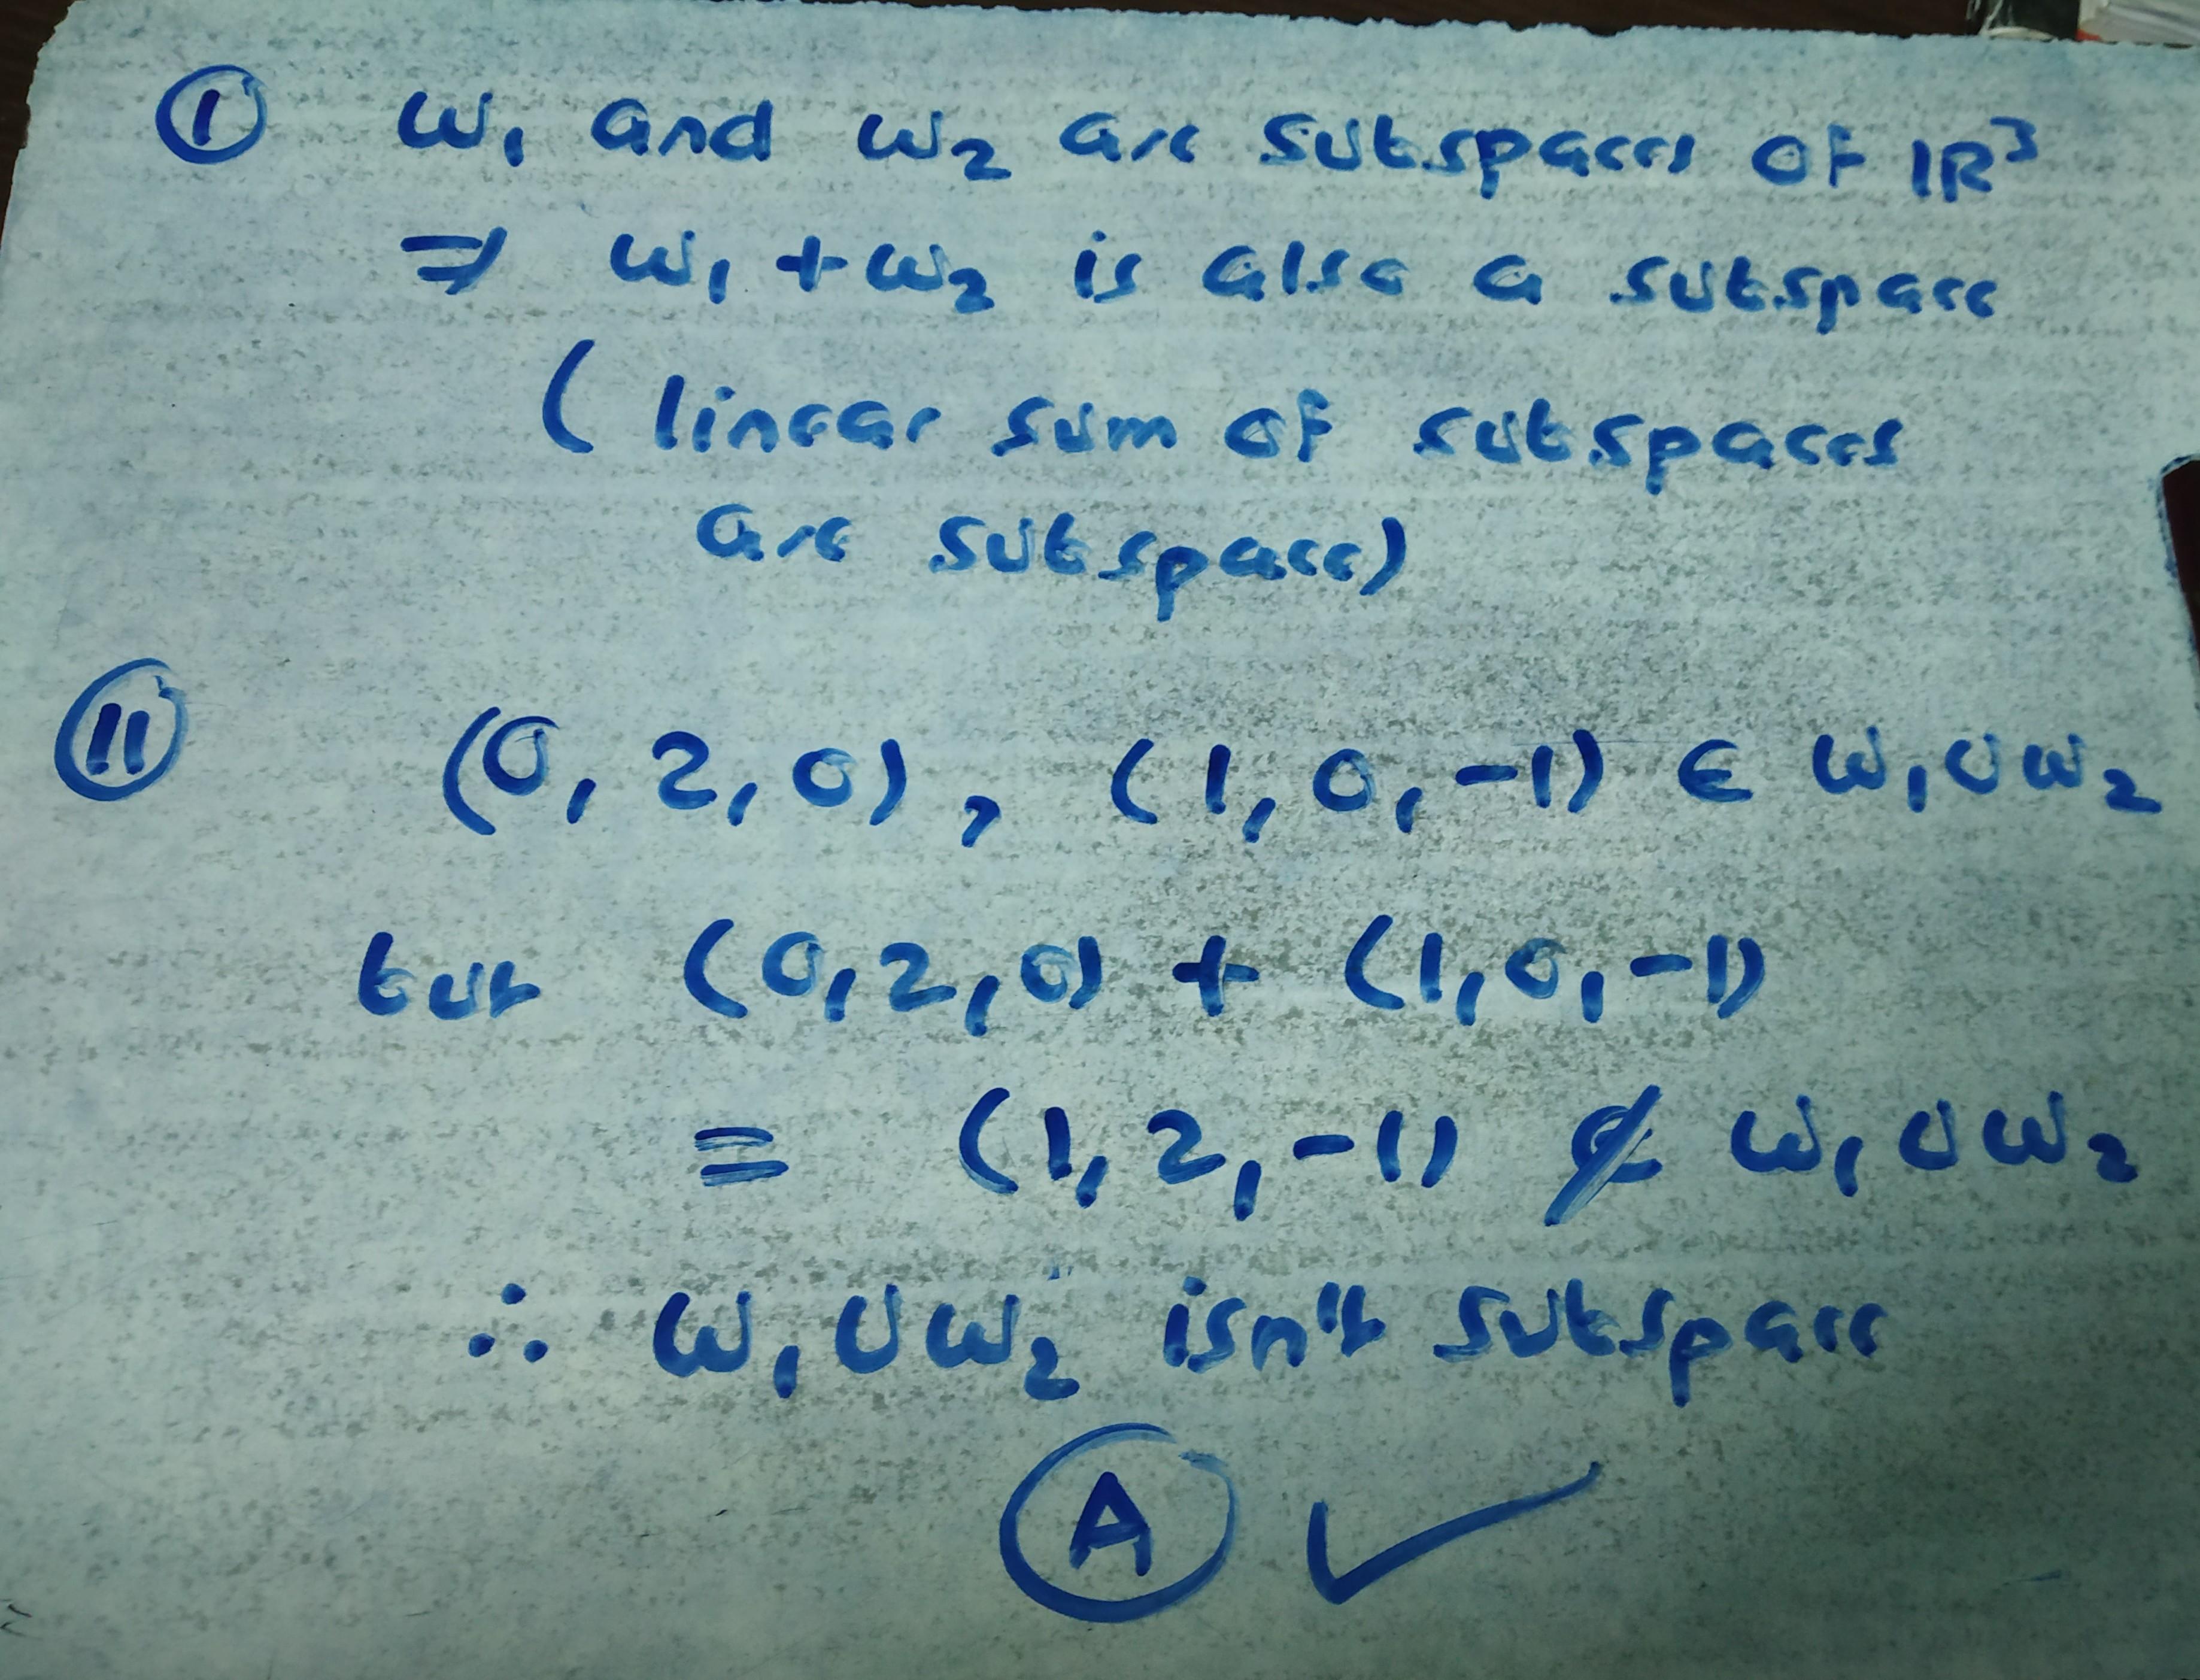 ① W₁ and W₂ are subspaces of ℝ³
⇒ W₁ + W₂ is also a subspace
( linear sum of subspaces
are subspace)
⑪ (0, 2, 0), (1, 0, -1) ∈ W₁∪W₂
but (0,2,0) + (1,0,-1)
= (1,2,-1) ∉ W₁∪W₂
∴ W₁∪W₂ isn't subspace
Ⓐ ✓